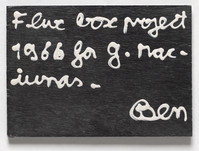 Flux box project
1966 for g. Mac-
iunas.
Ben